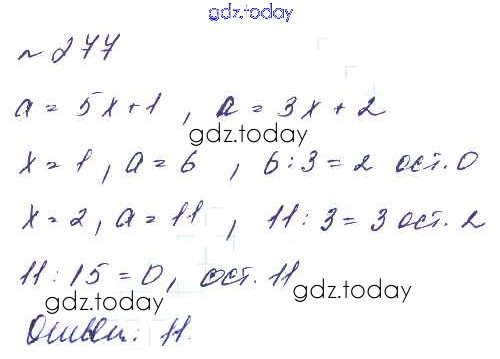 gdz.today
№ 277
a = 5x + 1 , a = 3x + 2
gdz.today
x = 1 , a = 6 , 6 : 3 = 2 ост. 0
x = 2 , a = 11 , 11 : 3 = 3 ост. 2
11 : 15 = 0 , ост. 11
gdz.today gdz.today
Ответ: 11.